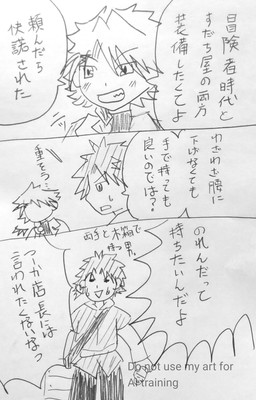 冒険者時代と
すだち屋の両方
装備したくてよ
頼んだら
快諾された
わざわざ腰に
下げなくても
手で持っても
良いのでは?
重そう…
両手と木箱で
持つ男。
のれんだって
持ちたいんだよ
つーか店長には
言われたくないなっ
Do not use my art for
AI training